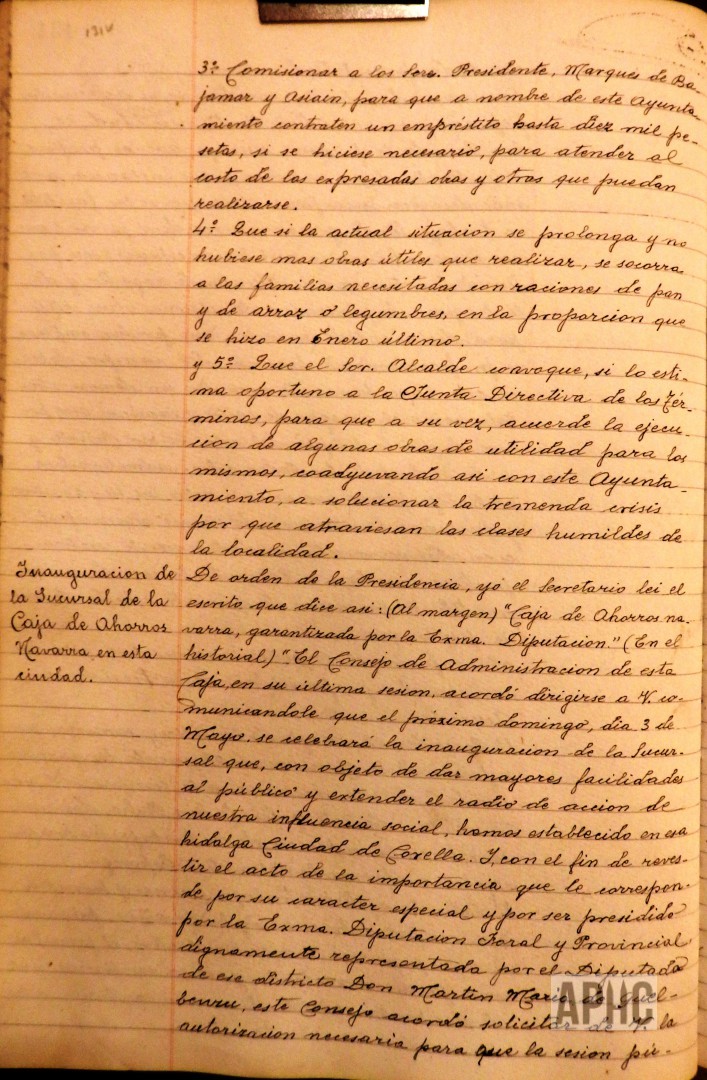 3º Comisionar a los Sres. Presidente, Marqués de Ba-
jamar y Asiain, para que a nombre de este Ayunta-
miento contraten un empréstito hasta diez mil pe-
setas, si se hiciese necesario, para atender al
costo de las expresadas obras y otras que puedan
realizarse.
4º Que si la actual situacion se prolonga y no
hubiese mas obras útiles que realizar, se socorra
a las familias necesitadas con raciones de pan
y de arroz o legumbres, en la proporcion que
se hizo en Enero último.
y 5º Que el Sor. Alcalde convoque, si lo esti-
ma oportuno a la Junta Directiva de los Tér-
minos, para que a su vez, acuerde la ejecu-
cion de algunas obras de utilidad para los
mismos, coadyuvando asi con este Ayunta-
miento, a solucionar la tremenda crisis
por que atraviesan las clases humildes de
la localidad.
Inauguracion de
la Sucursal de la
Caja de Ahorros
Navarra, en esta
ciudad.
De orden de la Presidencia, yó el Secretario lei el
escrito que dice asi: (Al margen) "Caja de Ahorros na-
varra, garantizada por la Exma. Diputacion." (En el
historial) "El Consejo de Administracion de esta
Caja, en su última sesion, acordó dirigirse a V. co-
municandole que el próximo domingo, dia 3 de
Mayo, se celebrará la inauguracion de la Sucur-
sal que, con objeto de dar mayores facilidades
al público y extender el radio de accion de
nuestra influencia social, hemos establecido en esa
hidalga Ciudad de Corella. Y, con el fin de reves-
tir el acto de la importancia que le correspon-
de por su caracter especial y por ser presidido
por la Exma. Diputacion Foral y Provincial
dignamente representada por el Diputado
de ese districto Don Martin Maria de Guel-
benzu, este Consejo acordó solicitar de V. la
autorizacion necesaria para que la sesion pú-
APHC